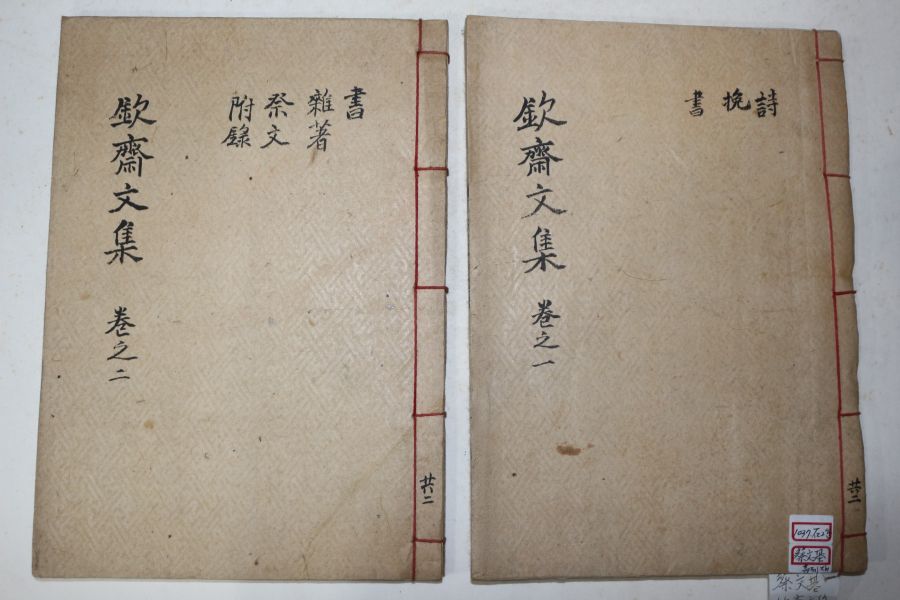 書
雜著
祭文
附錄
欽齋文集 卷之二
共二
詩
挽
書
欽齋文集 卷之一
共二